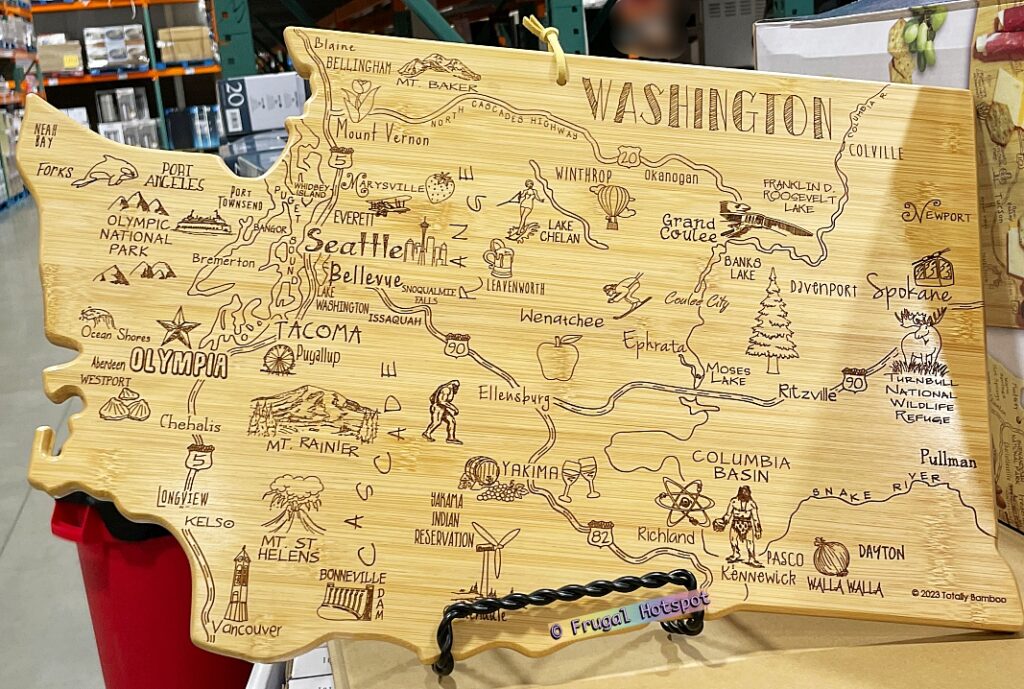 Blaine
BELLINGHAM
MT. BAKER
WASHINGTON
20
NORTH CASCADES HIGHWAY
COLUMBIA R
NEAH
BAY
Mount Vernon
20
COLVILLE
FORKS
PORT
ANGELES
5
WHIDBEY
ISLAND
MARYSVILLE
WINTHROP
Okanogan
FRANKLIN D.
ROOSEVELT
LAKE
PORT
TOWNSEND
PUGET
SOUND
EVERETT
NEWPORT
OLYMPIC
NATIONAL
PARK
BANGOR
LAKE
CHELAN
Grand
Coulee
Seattle
Bremerton
Bellevue
BANKS
LAKE
LAKE
WASHINGTON
SNOQUALMIE
FALLS
LEAVENWORTH
Coulee City
DAVENPORT
Spokane
ISSAQUAH
Wenatchee
Ocean Shores
TACOMA
90
Ephrata
Aberdeen
OLYMPIA
Puyallup
MOSES
LAKE
Ritzville
90
TURNBULL
NATIONAL
WILDLIFE
REFUGE
WESTPORT
Ellensburg
CASCADE RANGE
Chehalis
MT. RAINIER
5
YAKIMA
COLUMBIA
BASIN
Pullman
LONGVIEW
SNAKE RIVER
KELSO
YAKAMA
INDIAN
RESERVATION
MT. ST
HELENS
82
Richland
PASCO
Kennewick
DAYTON
WALLA WALLA
BONNEVILLE
DAM
Vancouver
© 2023 Totally Bamboo
© Frugal Hotspot